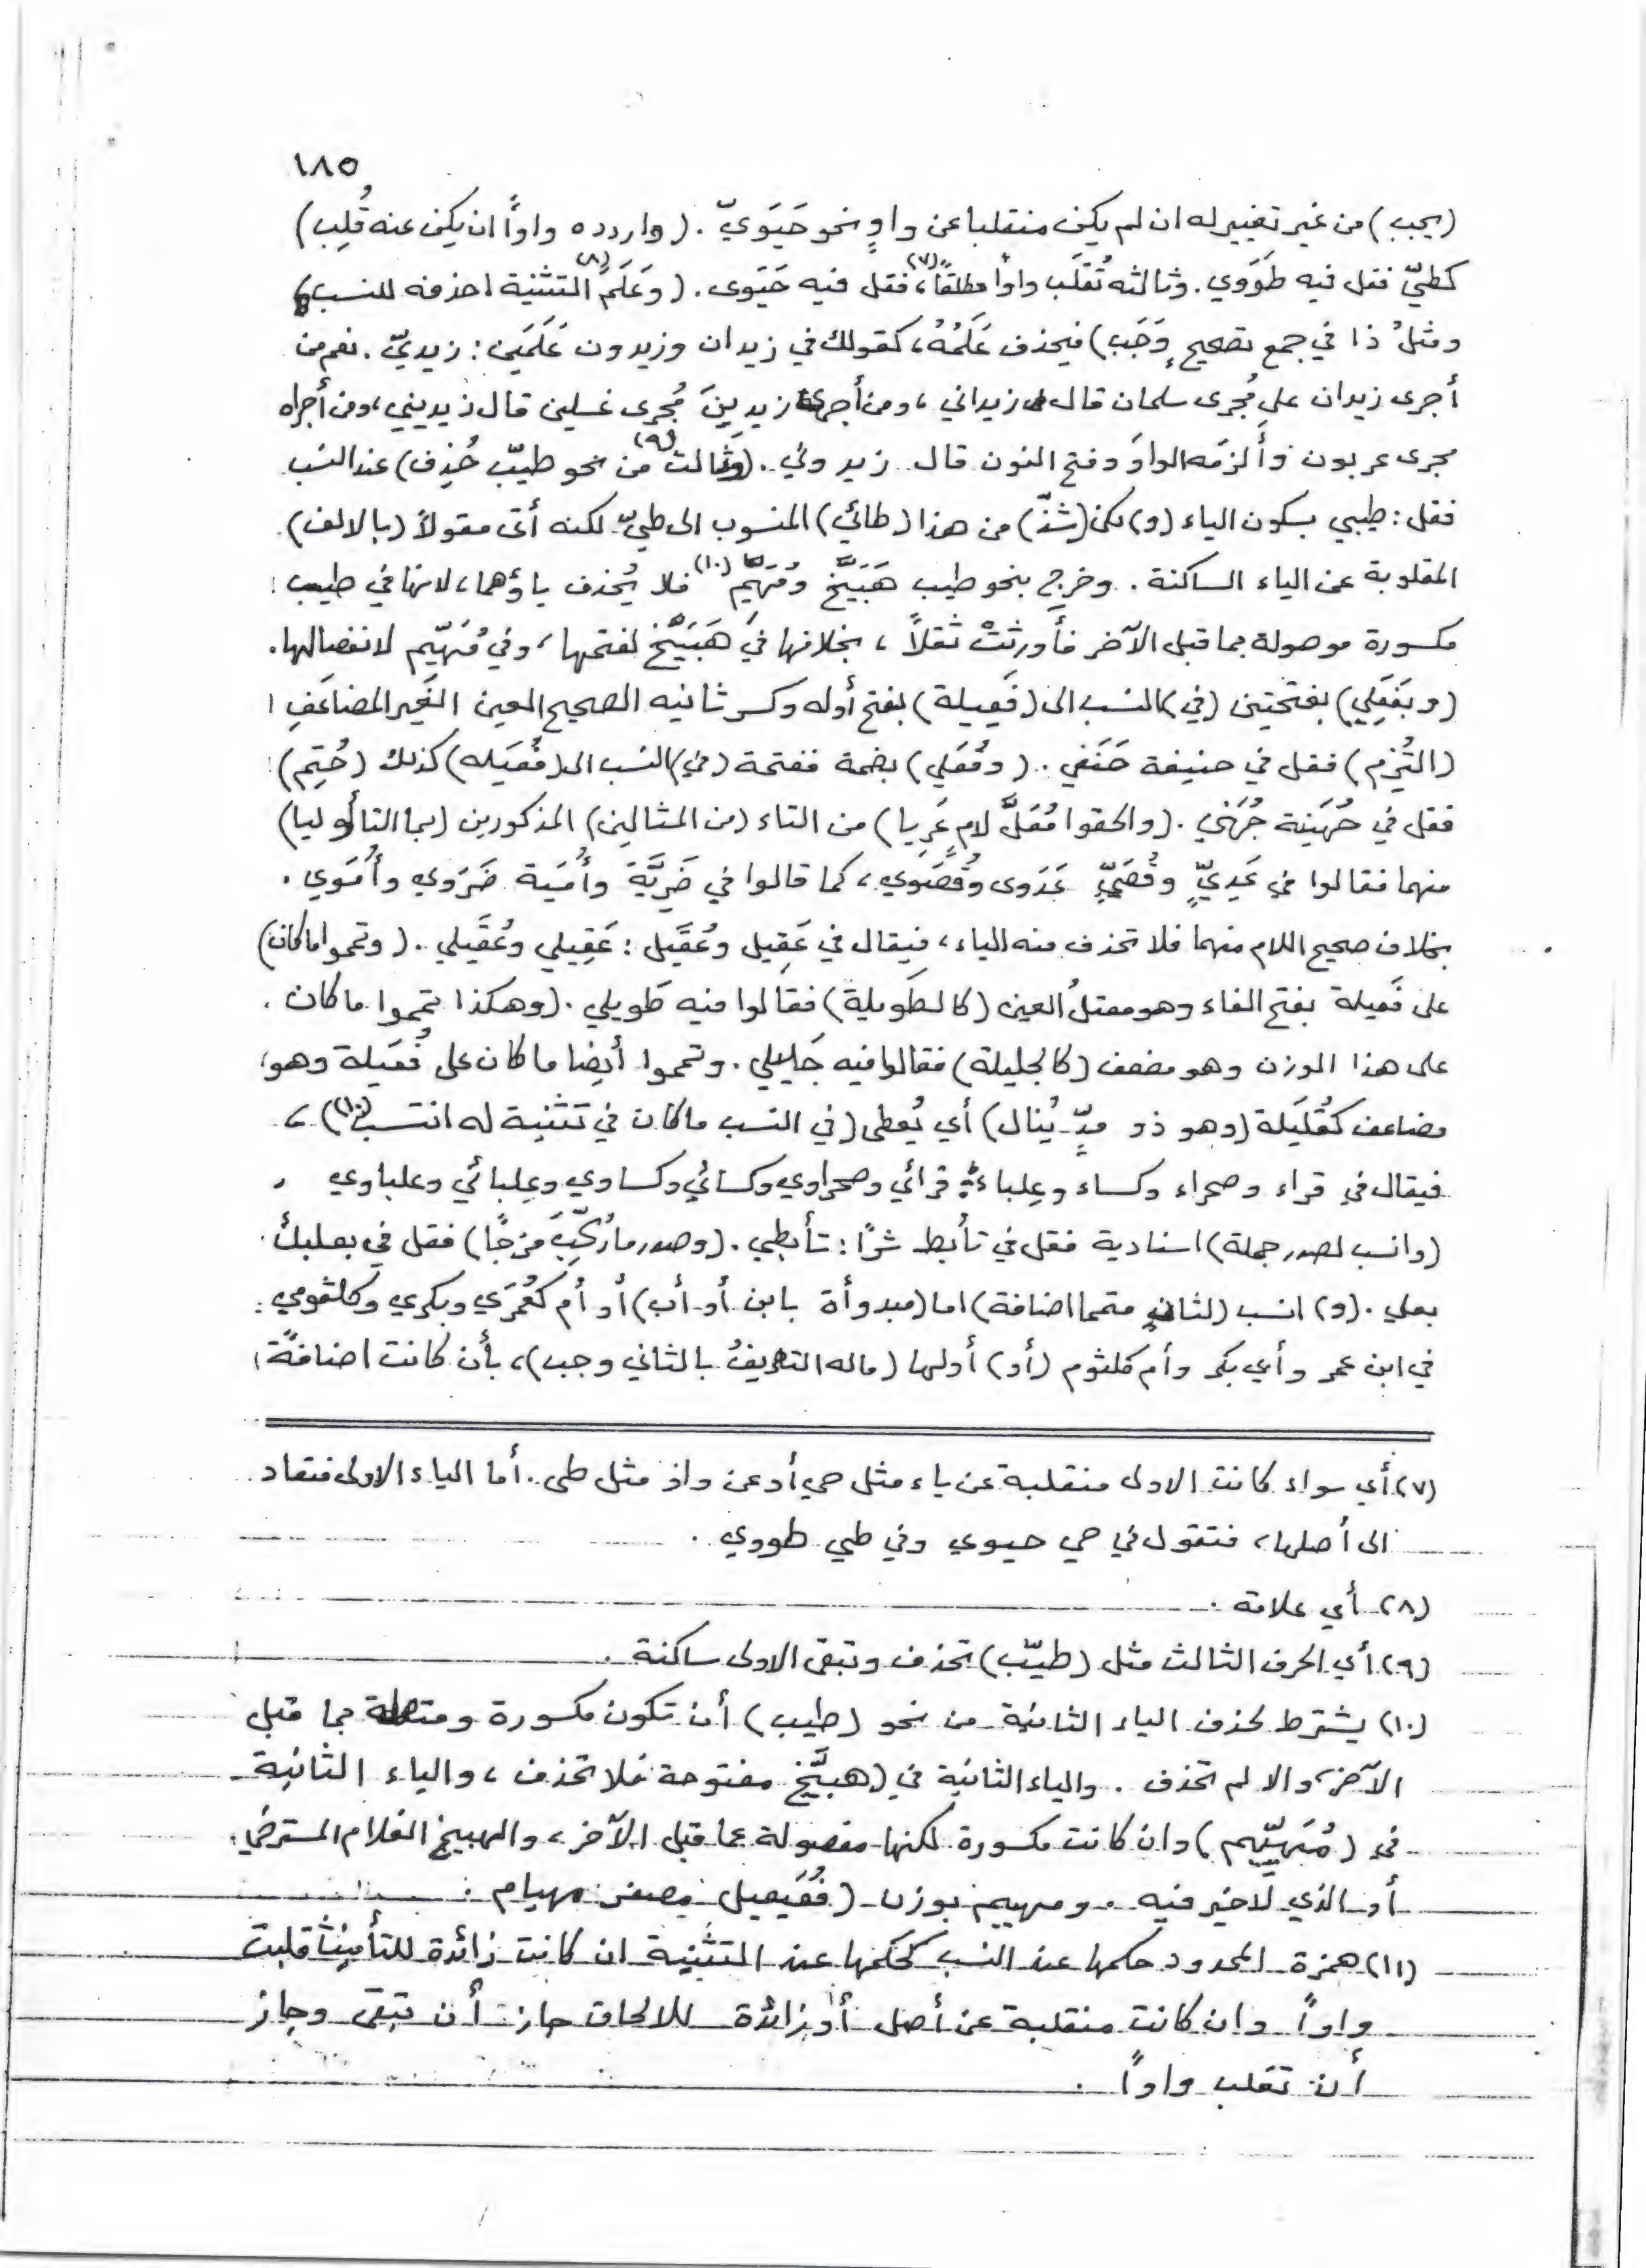 ١٨٥
(يجب) من غير تغيير له ان لم يكن منقلبا عن واوٍ نحو حَيَوِيّ . (واردده واواً ان يكن عنه قُلِب)
كطيّ فقل فيه طَوَوي . وثالثه تُقلَب واواً مطلقاً(٧)، فقل فيه حَيَوى . (وعَلَمَ(٨) التثنية احذفه للنسب)
ومثلُ ذا في جمع تصحيحٍ وَجَب) فيحذف عَلَمُهُ، كقولك في زيدان وزيدون عَلَمَين : زيديّ . نعم من
أجرى زيدان على مُجرى سلمان قال زيداني ، ومن أجرى زيدِينَ مُجرى غسلين قال زيديني ، ومن أجراه
مجرى عربون وألزمَه الواوَ وفتح النون قال زيدوني . (وثالث(٩) من نحو طيّب حُذِف) عند النسب
فقل : طيبي بسكون الياء (و) لكن (شذّ) من هذا (طائي) المنسوب الى طيّ لكنه أتى مقولاً (بالالف)
المقلوبة عن الياء الساكنة . وخرج بنحو طيب هَبَيَّخ ومُهَيِّم(١٠) فلا يُحذف ياؤهما، لانها في طيب
مكسورة موصولة بما قبل الآخر فأَورثتْ ثقلاً ، بخلافها في هَبَيَّخ لفتحها ، وفي مُهَيِّم لانفصالها .
(وبَفَعَلِي) بفتحتين (في) النسب الى (فَعِيلة) بفتح أوله وكسر ثانيه الصحيح العين الغير المضاعَفِ
(التُزِم) فقل في حنيفة حَنَفي . (وفُعَلي) بضمة ففتحة (في) النسب الى (فُعَيله) كذلك (حُتِم)
فقل في جُهَينة جُهَني . (والحقوا مُعَلَّ لامٍ عَرِيا) من التاء (من المثالين) المذكورين (بما التا أوليا)
منهما فقالوا في عَدِيٍّ وقُصَيٍّ عَدَوى وقُصَوي ، كما قالوا في ضَرِيَّة وأُمَية ضَرَوي وأُمَوي .
بخلاف صحيح اللام منهما فلا تحذف منه الياء ، فيقال في عَقِيل وعُقَيل : عَقِيلي وعُقَيلي . (وتمموا ما كان)
على فَعيلة بفتح الفاء وهو معتلُ العين (كالطَويلة) فقالوا فيه طَويلي . (وهكذا) تمموا ما كان
على هذا الوزن وهو مضعف (كالجليلة) فقالوا فيه جَليلي . وتمموا أيضا ما كان على فُعَيلة وهو
مضاعف كقُلَيلة (وهمز ذو مدٍّ يُنال) أي يُعطى (في النسب ما كان في تثنية له انتسب(١٠)) ،
فيقال في قراء وصحراء وكساء وعِلباء: قرائي وصحراوي وكسائي وكساوي وعِلبائي وعلباوي
(وانسب لصدر جملة) اسنادية فقل في تأبط شرًا : تأبطي . (وصدر ما رُكِّبَ مَزجًا) فقل في بعلبك
بعلي . (و) انسب (لثانٍ متمما اضافة) اما (مبدوأة بابن أو أب) أو أم كعُمَري وبكري وكلثومي
في ابن عمر وأبي بكر وأم كلثوم (أو) أولها (ماله التعريفُ بالثاني وجب) ، بأن كانت اضافةً
(٧) أي سواء كانت الاولى منقلبة عن ياء مثل حي أو عن واو مثل طى . أما الياء الاولى فتعاد
الى أصلها ، فتقول في حي حيوي وفي طي طووي .
(٨) أي علامة .
(٩) أي الحرف الثالث مثل (طيّب) تحذف وتبقى الاولى ساكنة .
(١٠) يشترط لحذف الياء الثانية من نحو (طيب) أن تكون مكسورة ومتصلة بما قبل
الآخر، والا لم تحذف . والياء الثانية في (هبيَّخ مفتوحة فلا تحذف ، والياء الثانية
في (مُهَيِّيم) وان كانت مكسورة لكنها مفصولة عما قبل الآخر ، والهبيخ الغلام المسترخي
أو الذي لاخير فيه . ومهييم بوزن (فُعَيعيل) مصغر مهيام .
(١١) همزة الممدود حكمها عند النسب كحكمها عند التثنية ان كانت زائدة للتأنيث قلبت
واواً وان كانت منقلبة عن أصل أو زائدة للالحاق جاز أن تبقى وجاز
أن تقلب واواً .